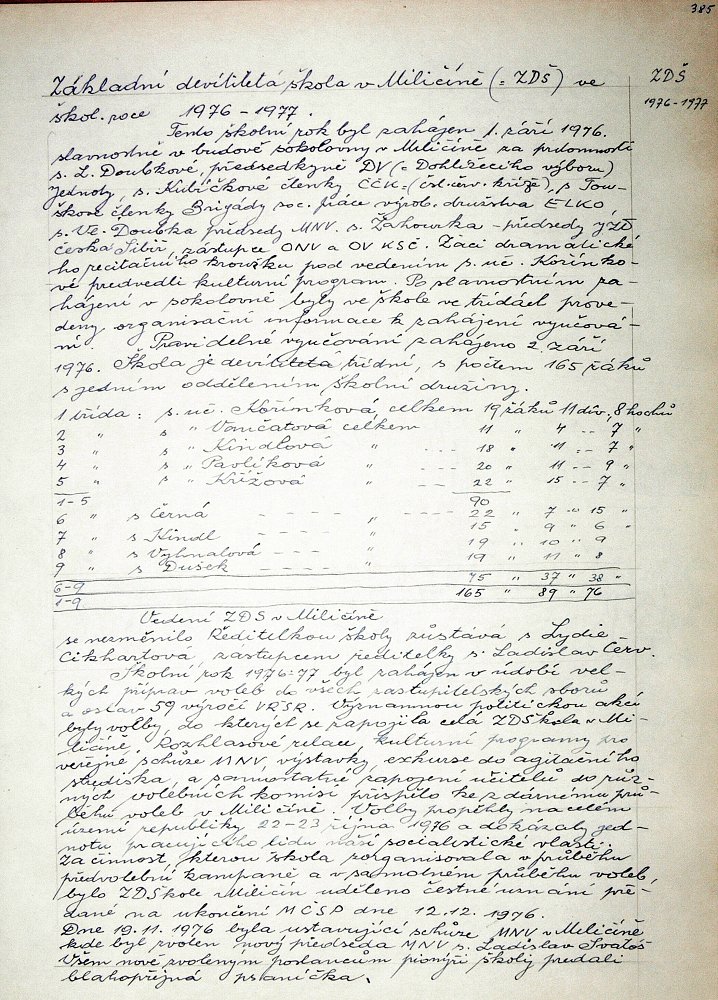 385
Základní devítiletá škola v Miličíně (= ZDŠ) ve
ZDŠ
škol. roce 1976 - 1977.
1976-1977
Tento školní rok byl zahájen 1. září 1976.
slavnostně v budově sokolovny v Miličíně za přítomnosti
s. L. Doubkové, předsedkyně DV (= Dohlížecího výboru)
Jednoty s. Kubíčkové členky ČČK = (čsl. červ. kříže), s Tou-
škové členky Brigády soc. práce výrob. družstva ELKO
s. Vě. Doubka předsedy MNV. s. Žahourka - předsedy JZD
česká Sibiř zástupce ONV a OV KSČ. Žáci dramatické
ho recitačního kroužku pod vedením s. uč. Kořínko-
vé předvedli kulturní program. Po slavnostním za-
hájení v sokolovně byly ve škole ve třídách prove-
deny organisační informace k zahájení vyučová-
ní. Pravidelné vyučování zahájeno 2. září
1976. Škola je devítiletá třídní, s počtem 165 žáků
s jedním oddělením školní družiny.
1 třída : s. uč. Kořínková, celkem 19 žáků 11 dív. 8 hochů
2 " s " Vančatová celkem 11 " 4 -- 7 "
3 " s " Kindlová " --- 18 " 11 -- 7 "
4 " s " Pavlíková " --- 20 " 11 -- 9 "
5 " s " Křížová " --- 22 " 15 -- 7 "
1-5 90
6 " s Černá ---- " --- 22 " 7 " 15 "
7 " s Kindl ---- " 15 " 9 " 6 "
8 " s Vyhnalová ---- " 19 " 10 " 9
9 " s Dušek ---- " 19 " 11 " 8
6-9 75 " 37 " 38 "
1-9 165 " 89 " 76
Vedení ZDŠ v Miličíně
se nezměnilo Ředitelkou školy zůstává s Lydie
Cikhartová, zástupcem ředitelky s. Ladislav Červ.
Školní rok 1976-77 byl zahájen v údobí vel-
kých příprav voleb do všech zastupitelských sborů
a oslav 59 výročí VŘSR. Významnou politickou akcí
byly volby, do kterých se zapojila celá ZDŠkola v Mi-
ličíně. Rozhlasové relace, kulturní programy pro
veřejné schůze MNV, výstavky, exkurse do agitačního
střediska, a samostatné zapojení učitelů do růz-
ných volebních komisí přispělo ke zdárnému prů-
běhu voleb v Miličíně. Volby proběhly na celém
území republiky 22-23 října 1976 a dokázaly jed-
notu pracujícího lidu naší socialistické vlasti.
Za činnost, kterou škola zorganisovala v průběhu
předvolební kampaně a v samotném průběhu voleb,
bylo ZDŠkole Miličín uděleno čestné uznání pře-
dané na ukončení MČSP dne 12.12. 1976.
Dne 19.11. 1976 byla ustavující schůze MNV v Miličíně
kde byl zvolen nový předseda MNV s. Ladislav Svatoš
Všem nově zvoleným poslancům pionýři školy předali
blahopřejná psaníčka.